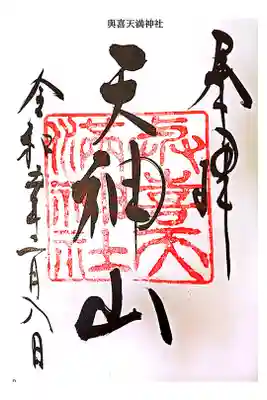 與喜天満神社
奉拝
天神山
與喜天
満神社
令和年二月八日